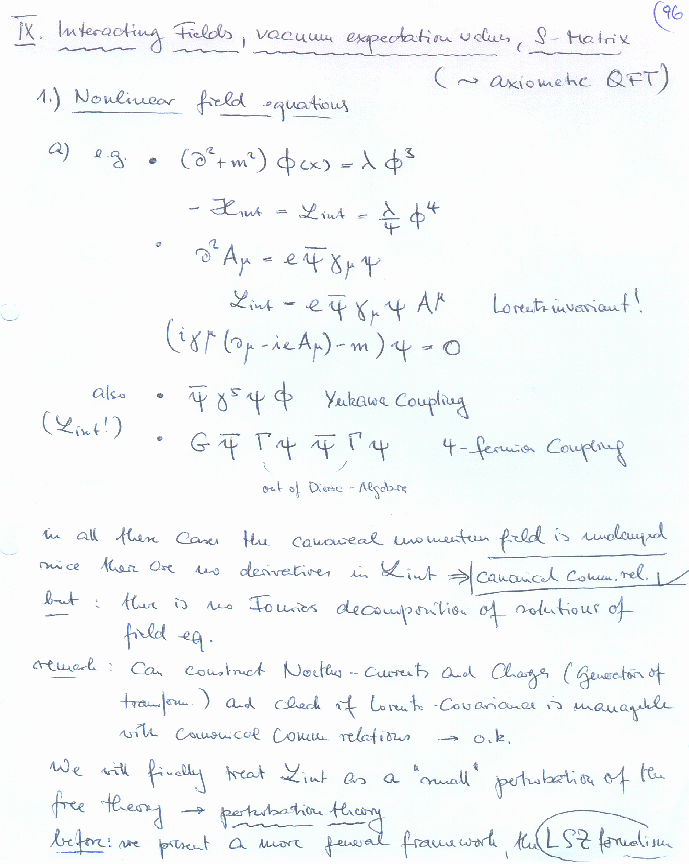 96
IX. Interacting Fields, vacuum expectation values, S-Matrix
(~ axiomatic QFT)
1.) Nonlinear field equations
a) e.g. • (∂²+m²) ϕ(x) = λ ϕ³
- ℋint = ℒint = λ/4 ϕ⁴
• ∂²Aμ = e ψ̄ γμ ψ
ℒint = e ψ̄ γμ ψ Aᵘ Lorentzinvariant!
(iγᵘ(∂μ - ieAμ) - m) ψ = 0
also • ψ̄ γ⁵ ψ ϕ Yukawa Coupling
(ℒint!) • G ψ̄ Γ ψ ψ̄ Γ ψ 4-fermion Coupling
out of Dirac-Algebra
in all these cases the canonical momentum field is unchanged
since there are no derivatives in ℒint ⇒ canonical comm. rel. ✓
but : there is no Fourier decomposition of solutions of
field eq.
remark : Can construct Noether-currents and Charges (Generators of
transform.) and check if Lorentz-Covariance is manageable
with canonical comm relations → o.k.
We will finally treat ℒint as a "small" pertubation of the
free theory → pertubation theory
before: we present a more general framework, the LSZ formalism